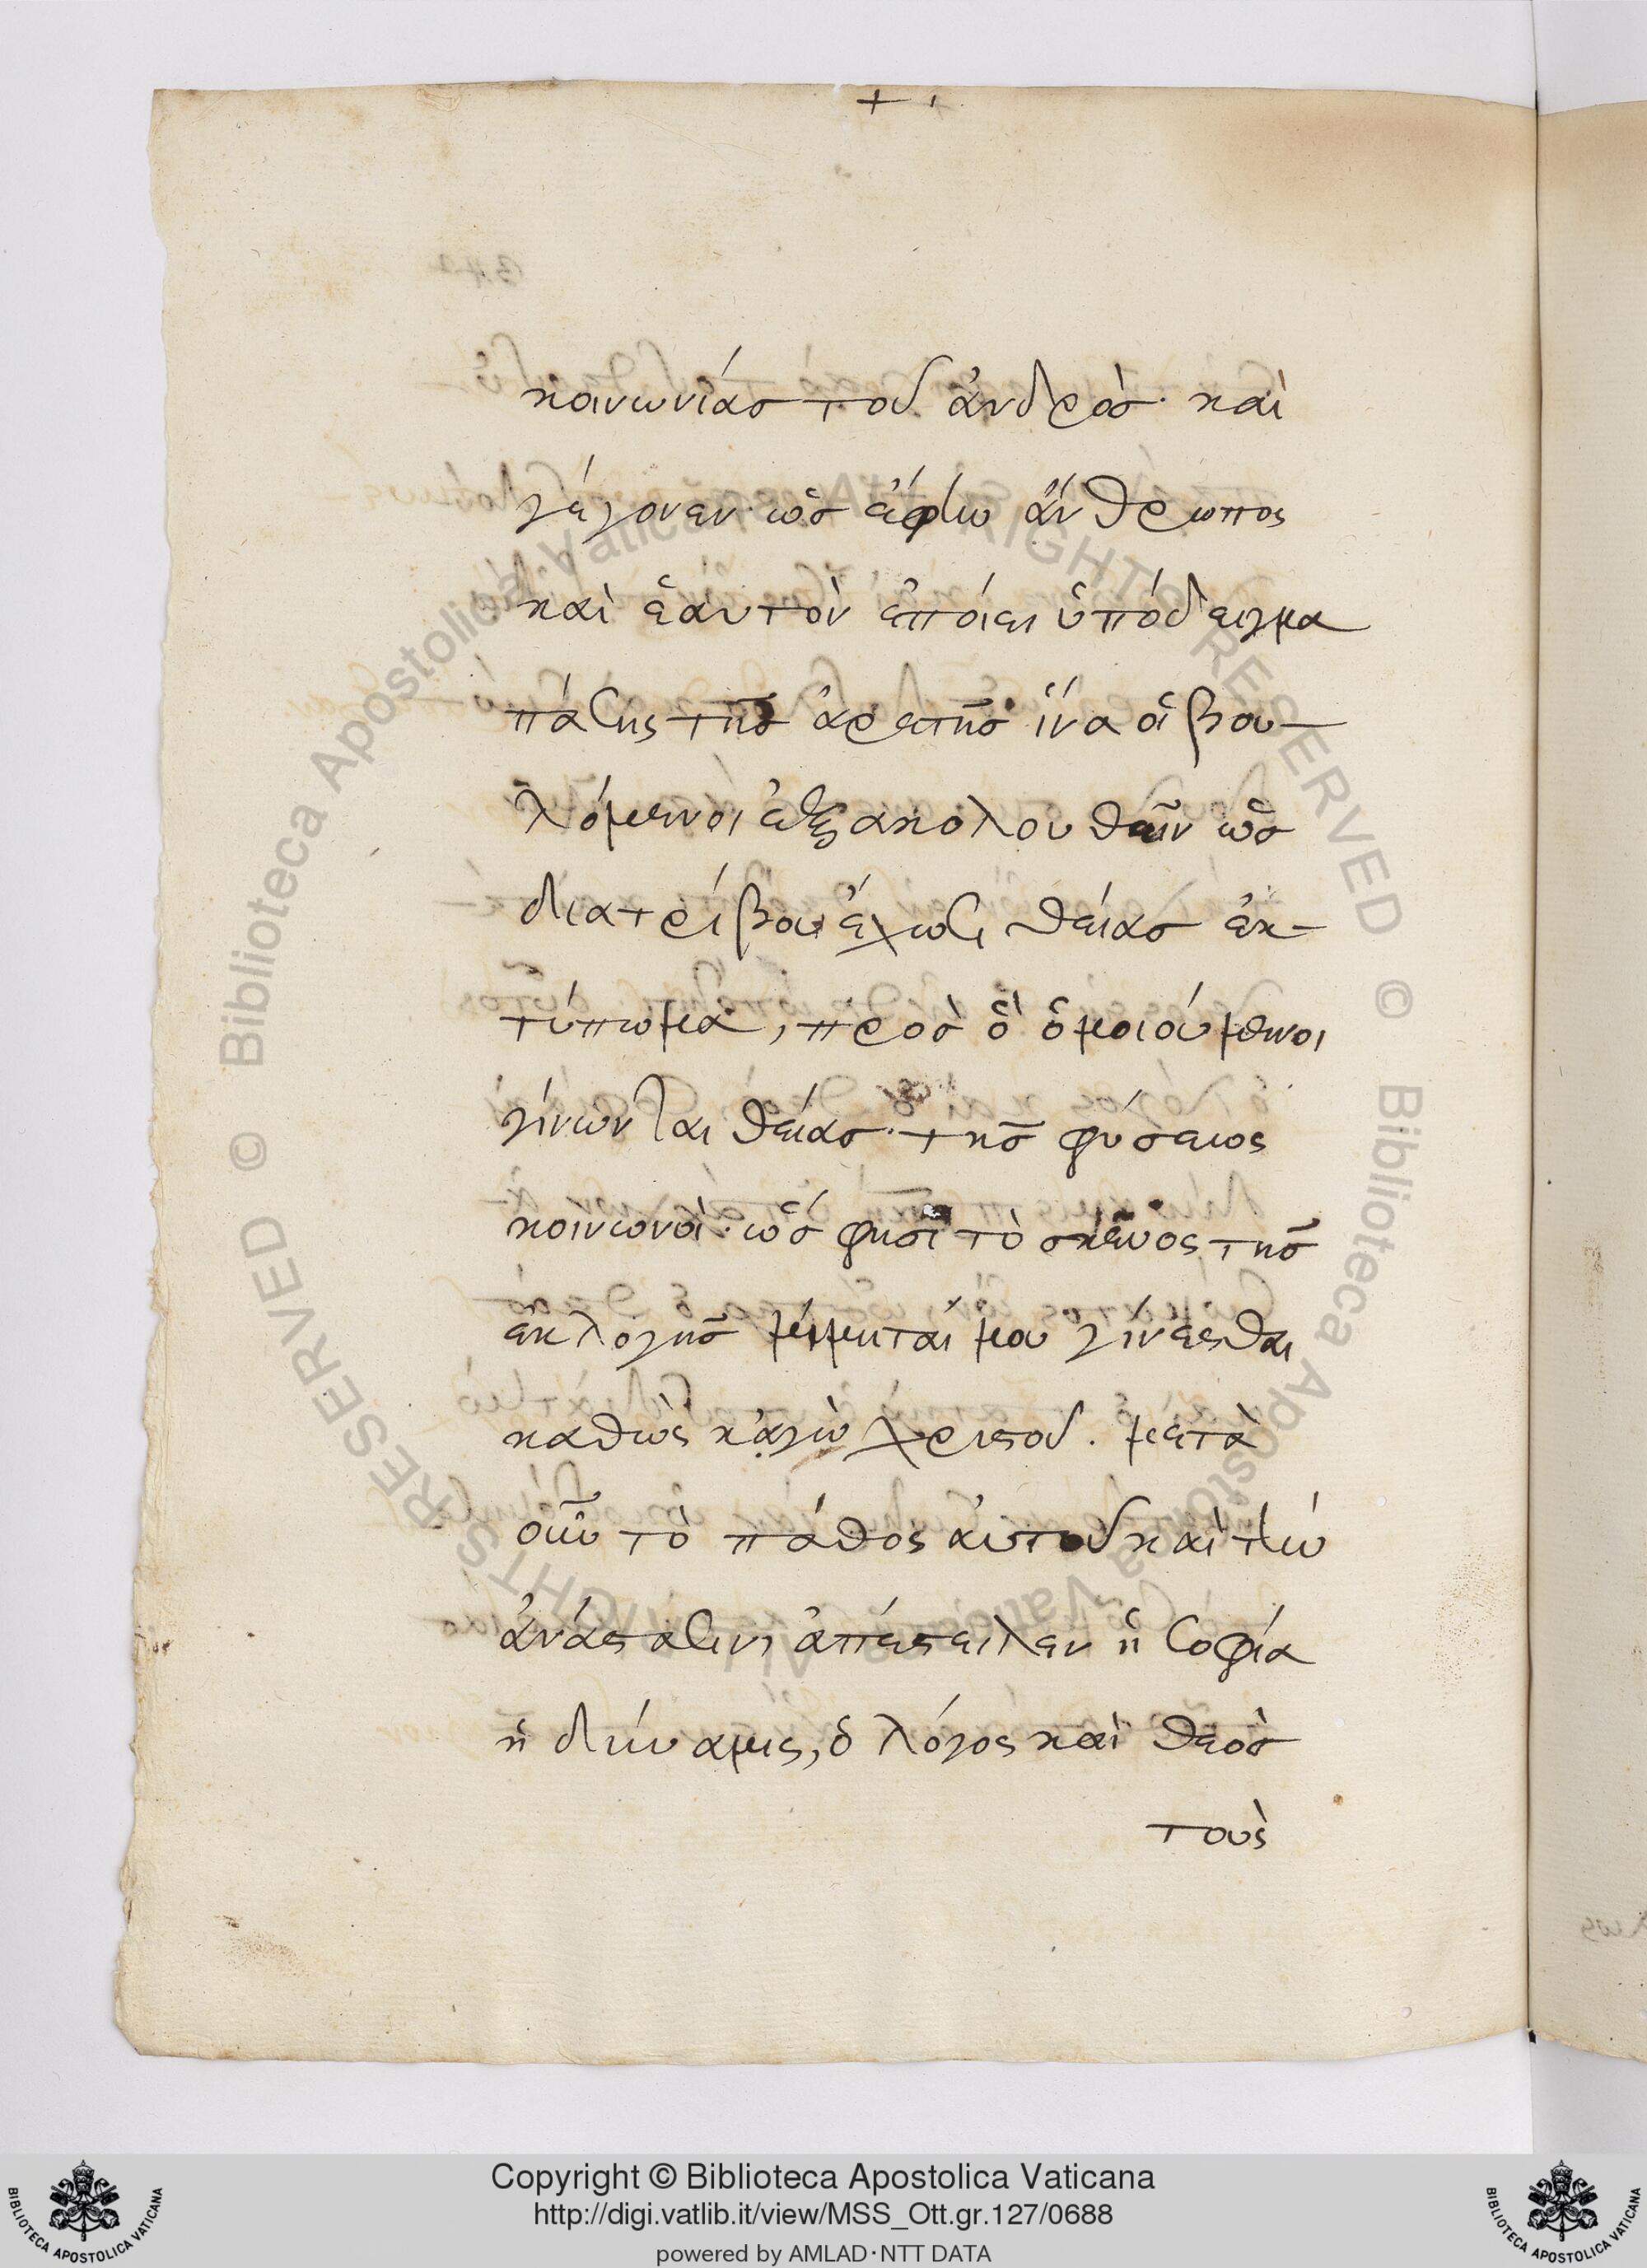 κοινωνίας τοῦ ἀνδρὸς· καὶ
γέγονεν ὡς ἔφην ἄνθρωπος
καὶ ἑαυτὸν ἐποίει ὑπόδειγμα
πάσης τῆς ἀρετῆς· ἵνα οἱ βου-
λόμενοι ἐξακολουθεῖν ὡς
διατρίβου ἔχωσι θείας ἐκ-
τύπωμα, πρὸς ὃ ὁμοιούμενοι
γίνωνται θείας· τῆς φύσεως
κοινωνοί· ὥς φησι τὸ σκεῦος τῆς
ἐκλογῆς μιμηταί μου γίνεσθαι
καθὼς κἀγὼ χριστοῦ. μετὰ
οὖν τὸ πάθος αὐτοῦ καὶ τὴν
ἀνάστασιν, ἀπέστειλεν ἡ σοφία
ἡ δύναμις, ὁ λόγος καὶ θεὸς
τοὺς
Copyright © Biblioteca Apostolica Vaticana
http://digi.vatlib.it/view/MSS_Ott.gr.127/0688
powered by AMLAD·NTT DATA